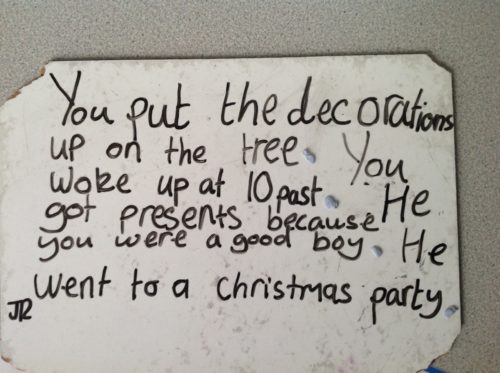 You put the decorations
up on the tree. You
woke up at 10 past. He
got presents because
you were a good boy. He
went to a christmas party.
JR